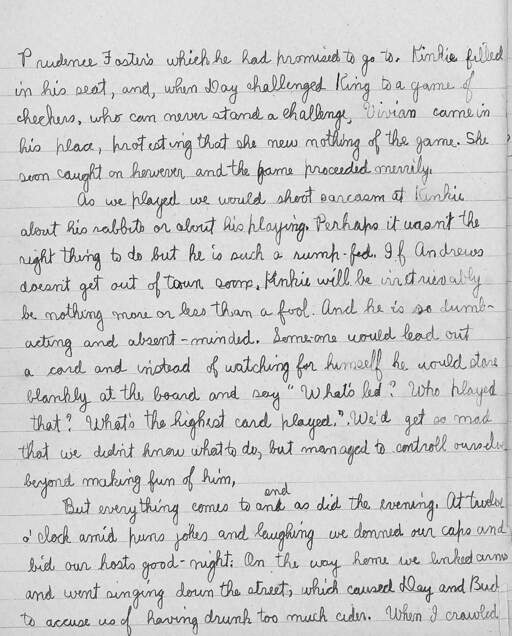 Prudence Foster's which he had promised to go to. Kinkie filled
in his seat, and, when Day challenged King to a game of
checkers, who can never stand a challenge, Vivian came in
his place, protesting that she new nothing of the game. She
soon caught on however and the game proceeded merrily.
As we played we would shoot sarcasm at Kinkie
about his rabbits or about his playing. Perhaps it wasn't the
right thing to do but he is such a rump-fed. If Andrews
doesn't get out of town soon, Kinkie will be irretrievably
be nothing more or less than a fool. And he is so dumb-
acting and absent-minded. Someone would lead out
a card and instead of watching for himself he would stare
blankly at the board and say "What's led? Who played
that? What's the highest card played.". We'd get so mad
that we didn't know what to do, but managed to controll ourselves
beyond making fun of him,
end
But everything comes to and as did the evening. At twelve
o'clock amid puns jokes and laughing we donned our caps and
bid our hosts good-night. On the way home we linked arms
and went singing down the street, which caused Day and Bud
to accuse us of having drunk too much cider. When I crawled